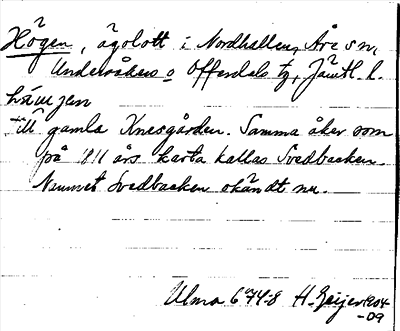 Högen, ägolott i Nordhallen, Åre sn,
Undersåkers o Offerdals tg, Jämtl. l.
hǻuɡen
till gamla Knesgården. Samma åker som
på 1811 års karta kallas Svedbacken.
Namnet Svedbacken okändt nu.
Ulma 674:8 H. Geijer 1904
-09